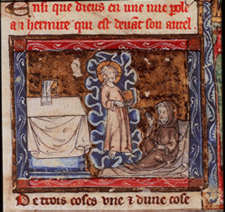 Ensi que dieus en une nue pole
a i hermite qui est devant son autel
De trois coses une & dune cose